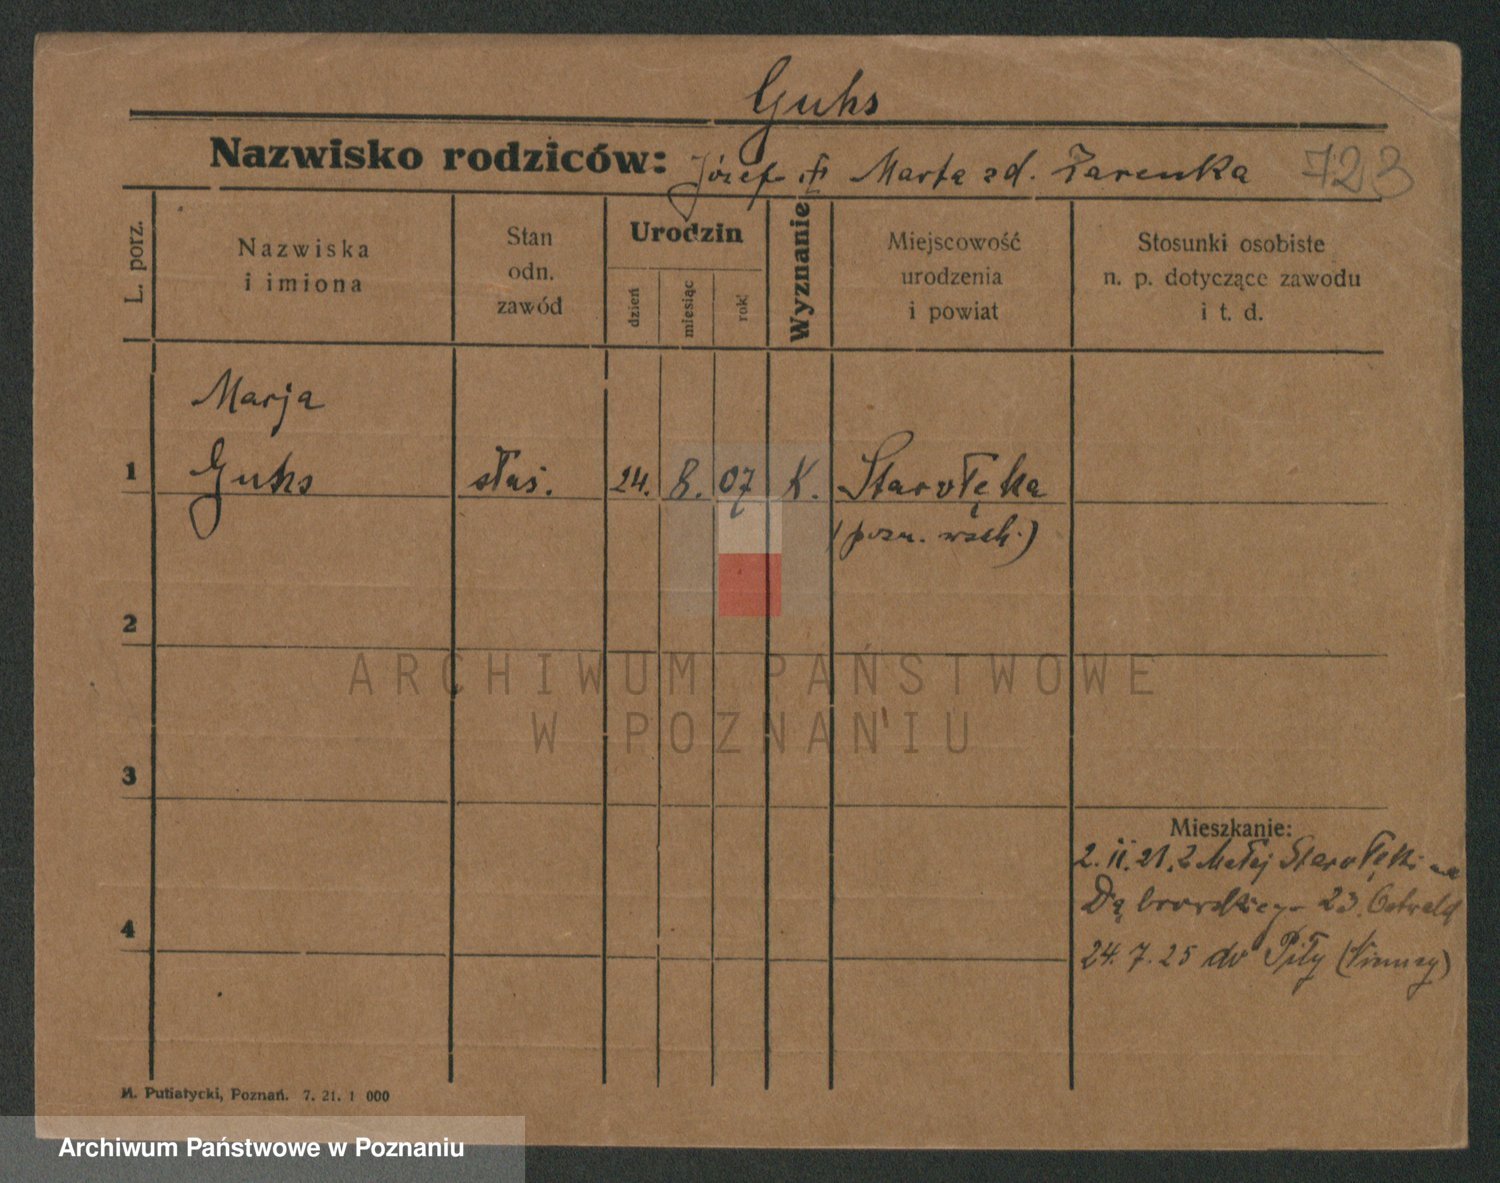 Guhs
Nazwisko rodziców: Józef i Marta zd. Żarenka 723
L. porz.
Nazwiska
i imiona
Stan
odn.
zawód
Urodzin
dzień
miesiąc
rok
Wyznanie
Miejscowość
urodzenia
i powiat
Stosunki osobiste
n. p. dotyczące zawodu
i t. d.
Marja
1 Guhs służ. 24. 8. 07 K. Starołęka
(pozn. wsch.)
2
ARCHIWUM PAŃSTWOWE
W POZNANIU
3
Mieszkanie:
2. 11. 21. z Małej Starołęki na
Dąbrowskiego 23.
4
24. 7. 25 do Piły (Niemcy)
M. Putiatycki, Poznań. 7. 21. 1 000
Archiwum Państwowe w Poznaniu